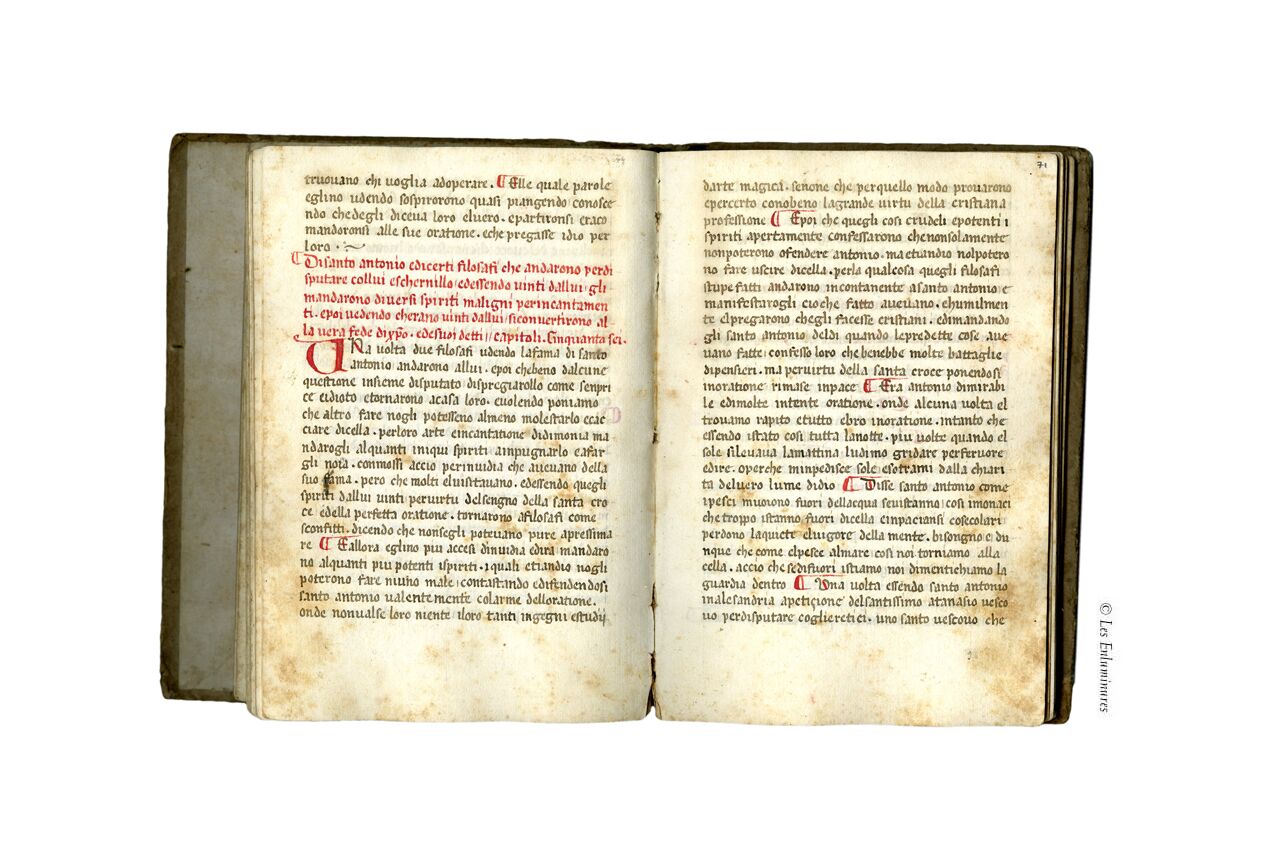 truovano chi voglia adoperare. ¶ Elle quale parole
eglino udendo sospirorono quasi piangendo conosce
ndo chedegli diceva loro eluero. epartironsi eraco
mandoronsi alle sue oratione. eche pregasse idio per
loro.
¶ Disanto antonio edicerti filosafi che andarono perdi
sputare collui eschernillo edessendo uinti dallui gli
mandarono diuersi spiriti maligni perincantamen
ti. epoi uedendo cherano uinti dallui siconuertirono al
la uera fede dixpo. edesuoi detti. capitoli. Cinquanta sei.
UNa uolta due filosafi udendo lafama di santo
antonio andarono allui. epoi chebeno dalcune
questione insieme disputato dispregiarollo come senpri
ce eidioto etornarono acasa loro. euolendo poniamo
che altro fare nogli potesseno almeno molestarlo ecac
ciare dicella. perloro arte eincantatione didimonia ma
ndarogli alquanti iniqui spiriti ampugnarlo eafar
gli noia. conmossi accio perinuidia che aueuano della
suo fama. pero che molti eluisitauano. edessendo quegli
spiriti dallui uinti peruirtu delsengno della santa cro
ce edella perfetta oratione. tornarono afilosafi come
sconfitti. dicendo che nonsegli poteuano pure apressima
re ¶ Eallora eglino piu accesi dinuidia edira mandaro
no alquanti piu potenti ispiriti. iquali etiandio nogli
poterono fare niuno male contastando edifendendosi
santo antonio ualentemente colarme delloratione.
onde nonualse loro niente iloro tanti ingegni estudij
71
darte magica. senone che perquello modo prouarono
epercerto conobeno lagrande uirtu della cristiana
professione ¶ Epoi che quegli cosi crudeli epotenti i
spiriti apertamente confessarono chenonsolamente
nonpoterono ofendere antonio. maetiandio nolpotero
no fare uscire dicella. perla qualcosa quegli filosafi
stupefatti andarono incontanente asanto antonio e
manifestarogli cioche fatto aueuano. ehumilmen
te elpregarono chegli facesse cristiani. edimandando
gli santo antonio deldi quando lepredette cose aue
uano fatte confesso loro chebenebbe molte battaglie
dipensieri. ma peruirtu della santa croce ponendosi
inoratione rimase inpace ¶ Era antonio dimirabi
le edimolte intente oratione. onde alcuna uolta el
trouamo rapito etutto ebro inoratione. intanto che
essendo istato cosi tutta lanotte. piu uolte quando el
sole sileuaua lamattina ludimo gridare perferuore
edire. operche minpedisce sole esotrami dalla chiari
ta deluero lume didio ¶ Disse santo antonio come
ipesci muoiono fuori dellacqua seuistanno cosi imonaci
che troppo istanno fuori dicella einpaciansi cosecolari
perdono laquiete eluigore della mente. bisongno e du
nque che come elpesce almare cosi noi torniamo alla
cella. accio che sedifuori istiamo noi dimentichiamo la
guardia dentro ¶ Una uolta essendo santo antonio
inalesandria apetiçione delsantissimo atanasio uesco
uo perdisputare coglieretici. uno santo uescouo che
© Les Enluminures